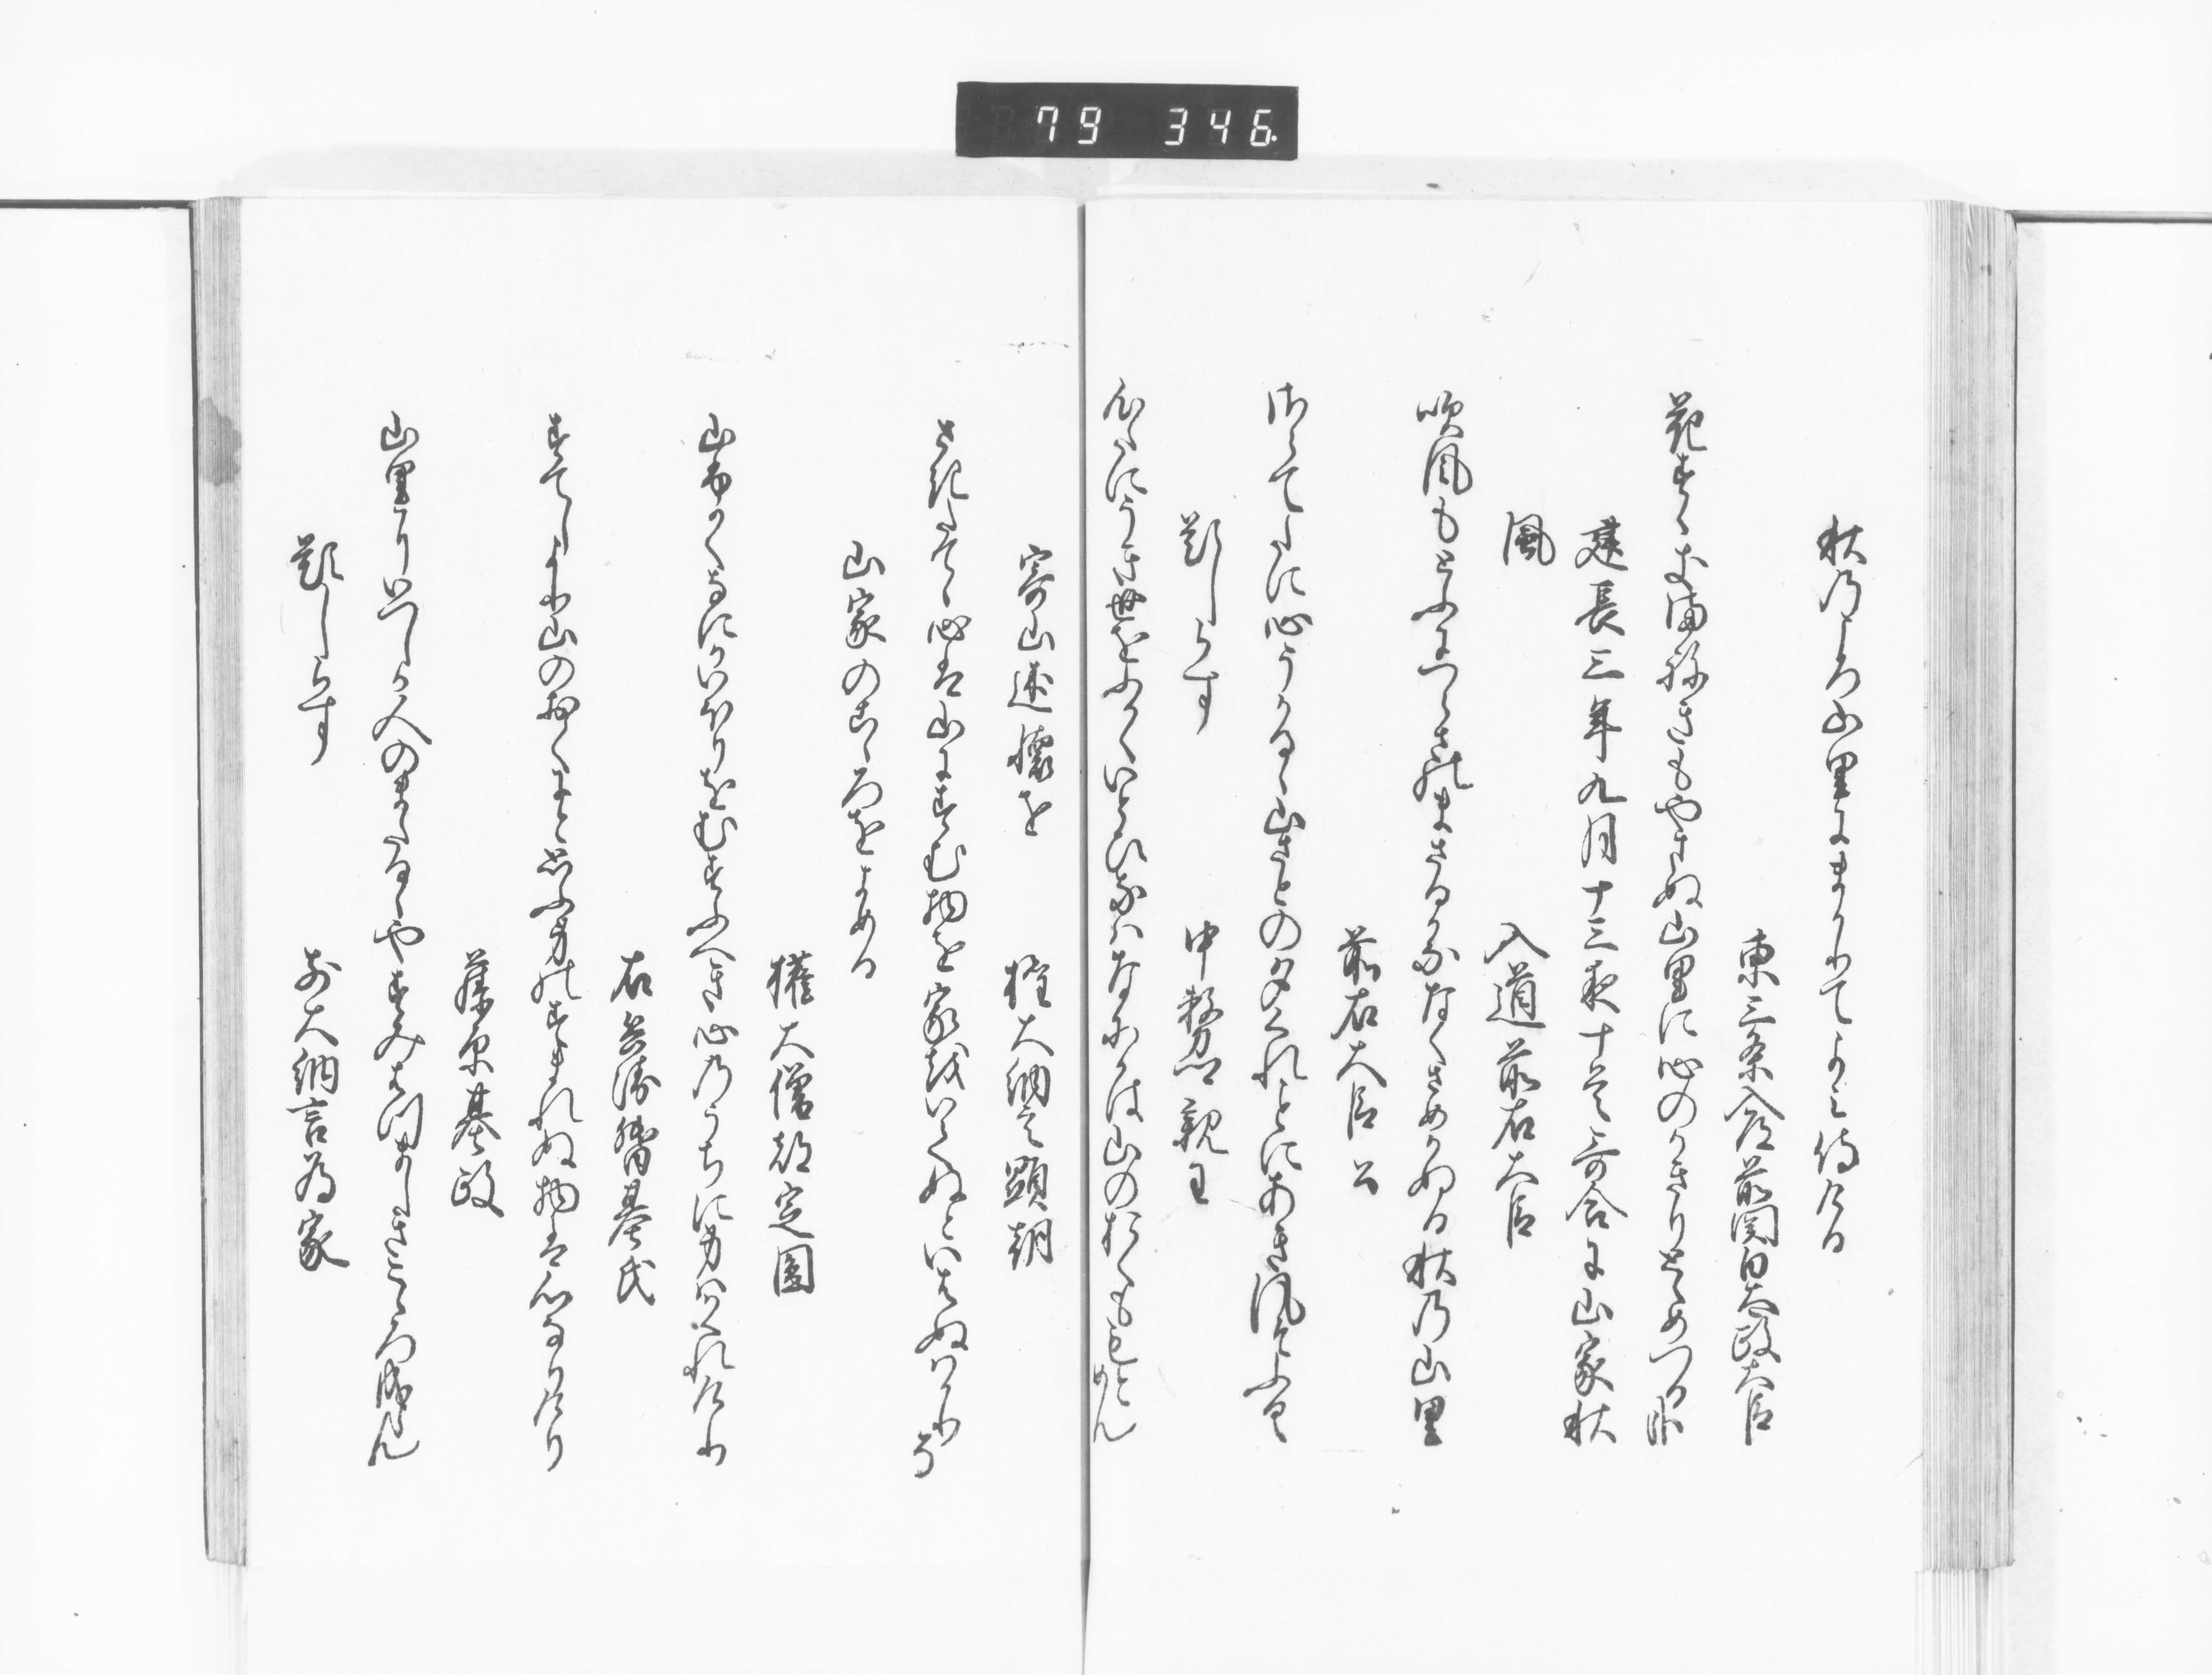 79 346
秋のころ山里にまかりてよみ侍ける
東三条入道前関白太政大臣
花すゝきまねきもやまぬ山里に心のかきりとゝめつる哉
建長三年九月十三夜十首哥合に山家秋
風
入道前右大臣
吹風もとふにつらさのまさるかななくさめかぬる秋乃山里
前右大臣
さらてたに心うかるゝ山さとの夕くれことにあき風そふく
題しらす
中務卿親王
心からにうき世をふかくいとひなはなにかは山のおくももとめん
寄山述懐を
権大納言顕朝
さきたてゝ心は山にすむ物を家をいてぬといはぬはかりそ
山家のこゝろをよめる
権大僧都定円
山ふかくなにかいほりをむすふへき心乃うちに身はかくれけり
右兵衛督基氏
すてしより山のおくにと思ふ身のすまれぬ物は心なりけり
藤原基政
山里にいつしか人のまたるゝやすみはつましきこゝろ成らん
題しらす
前大納言為家